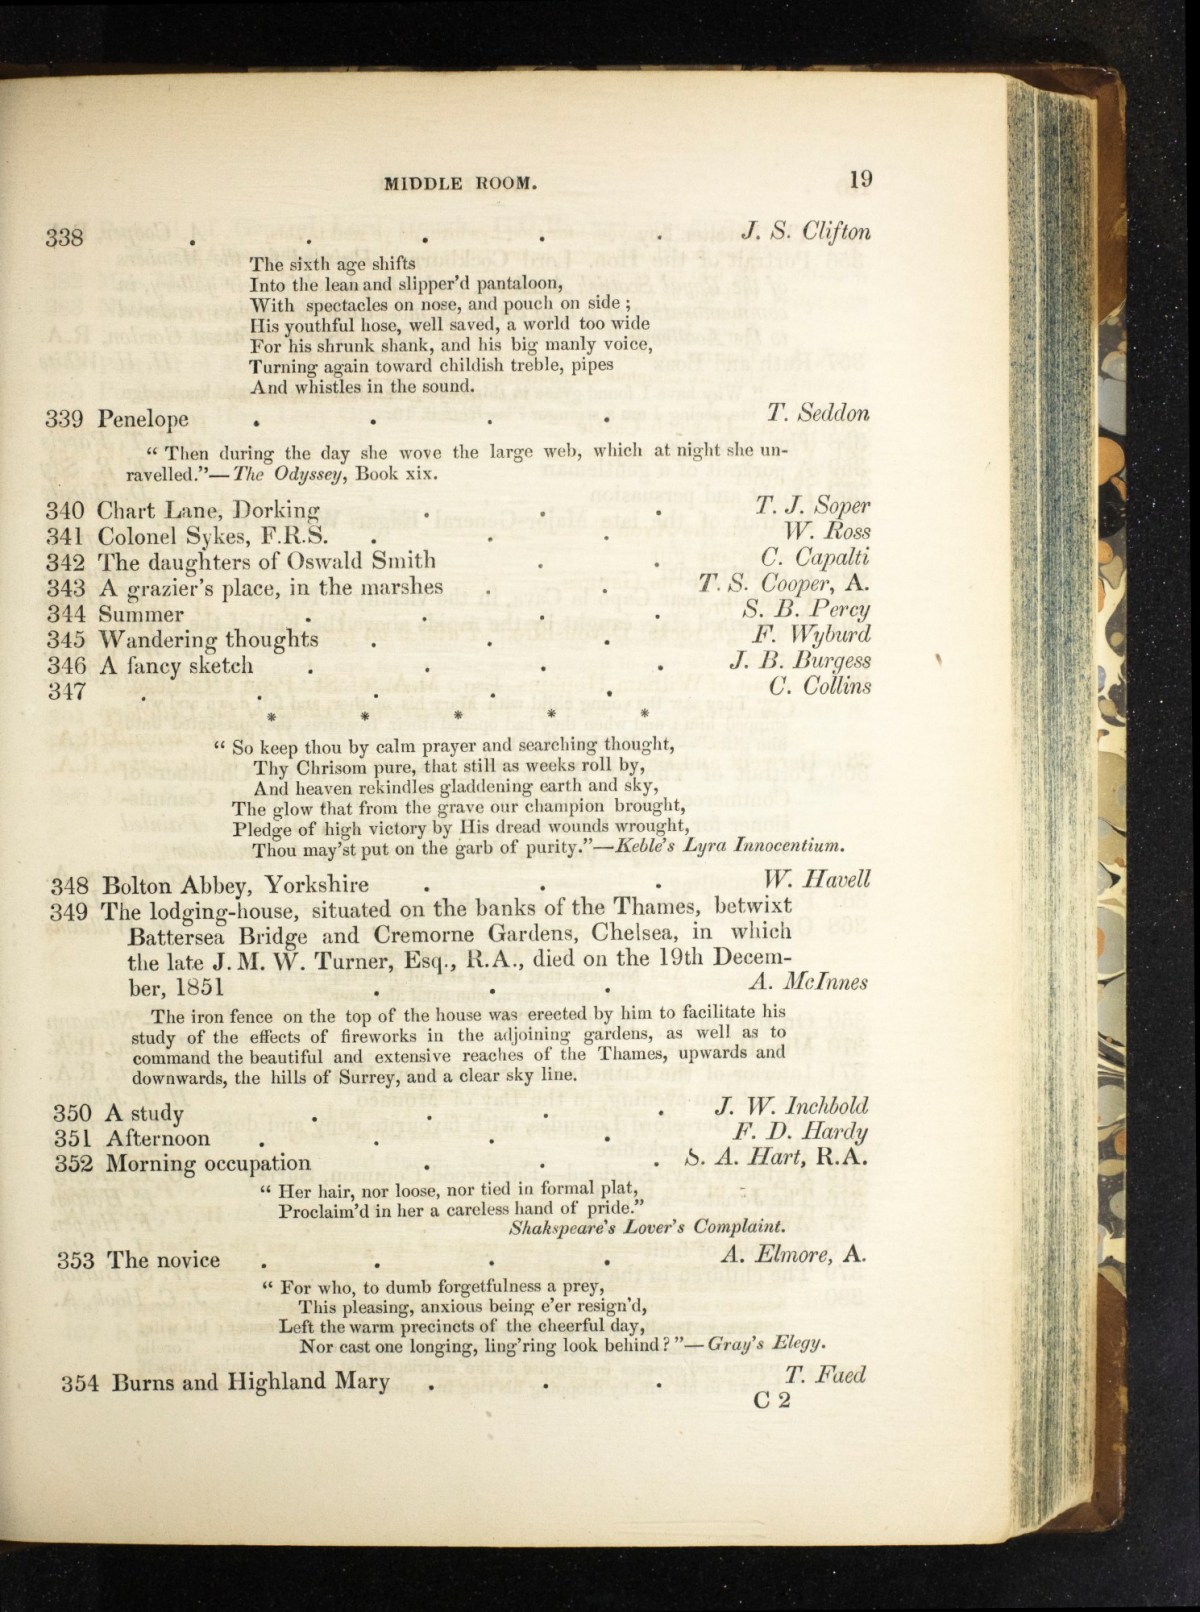 MIDDLE ROOM. 19
338 . . . . . J. S. Clifton
The sixth age shifts
Into the lean and slipper'd pantaloon,
With spectacles on nose, and pouch on side ;
His youthful hose, well saved, a world too wide
For his shrunk shank, and his big manly voice,
Turning again toward childish treble, pipes
And whistles in the sound.
339 Penelope . . . . T. Seddon
“ Then during the day she wove the large web, which at night she un-
ravelled.”—The Odyssey, Book xix.
340 Chart Lane, Dorking . . . T. J. Soper
341 Colonel Sykes, F.R.S. . . . W. Ross
342 The daughters of Oswald Smith . . C. Capalti
343 A grazier's place, in the marshes . . T. S. Cooper, A.
344 Summer . . . . S. B. Percy
345 Wandering thoughts . . . F. Wyburd
346 A fancy sketch . . . . J. B. Burgess
347 . . . . . C. Collins
* * * * *
“ So keep thou by calm prayer and searching thought,
Thy Chrisom pure, that still as weeks roll by,
And heaven rekindles gladdening earth and sky,
The glow that from the grave our champion brought,
Pledge of high victory by His dread wounds wrought,
Thou may'st put on the garb of purity.”—Keble's Lyra Innocentium.
348 Bolton Abbey, Yorkshire . . . W. Havell
349 The lodging-house, situated on the banks of the Thames, betwixt
Battersea Bridge and Cremorne Gardens, Chelsea, in which
the late J. M. W. Turner, Esq., R.A., died on the 19th Decem-
ber, 1851 . . . A. McInnes
The iron fence on the top of the house was erected by him to facilitate his
study of the effects of fireworks in the adjoining gardens, as well as to
command the beautiful and extensive reaches of the Thames, upwards and
downwards, the hills of Surrey, and a clear sky line.
350 A study . . . . J. W. Inchbold
351 Afternoon . . . . F. D. Hardy
352 Morning occupation . . . S. A. Hart, R.A.
“ Her hair, nor loose, nor tied in formal plat,
Proclaim'd in her a careless hand of pride.”
Shakspeare's Lover's Complaint.
353 The novice . . . . A. Elmore, A.
“ For who, to dumb forgetfulness a prey,
This pleasing, anxious being e'er resign'd,
Left the warm precincts of the cheerful day,
Nor cast one longing, ling'ring look behind ? ”—Gray's Elegy.
354 Burns and Highland Mary . . . T. Faed
C 2